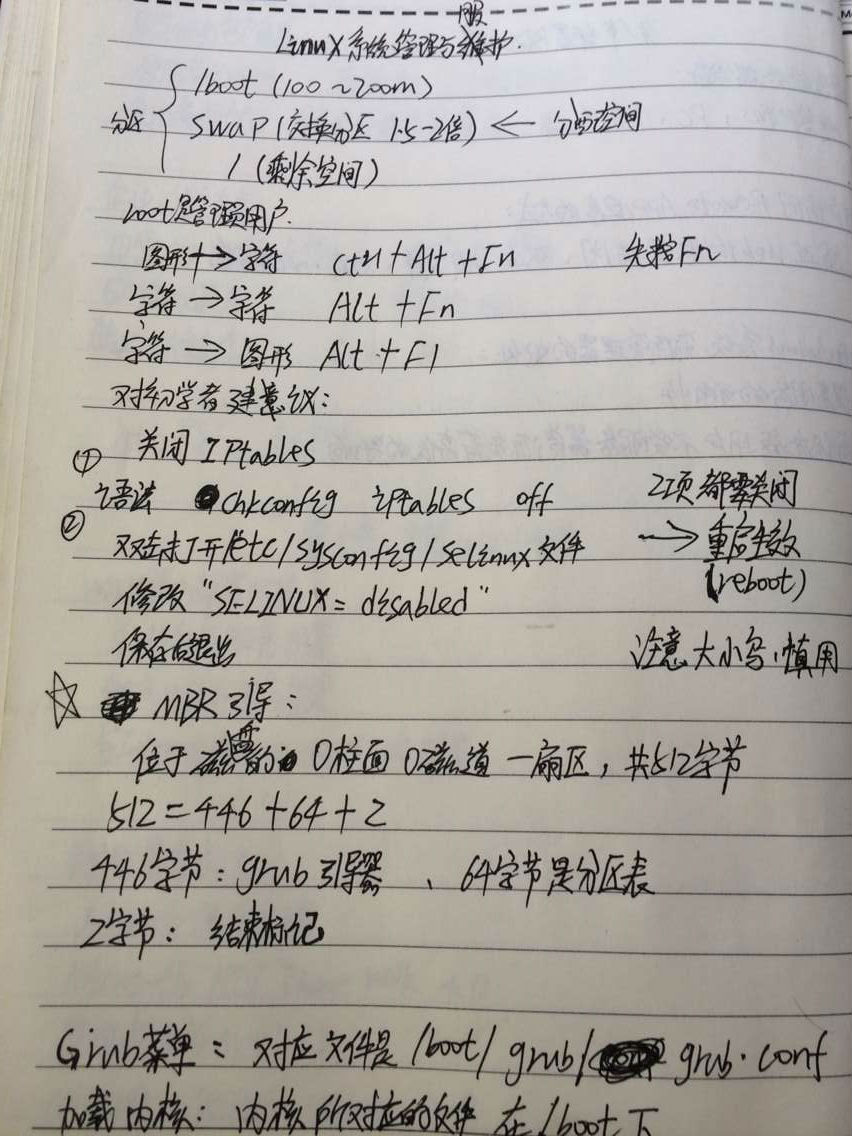 Linux系统管理与维护.
服
/boot (100~200m)
分区 swap (交换分区 1.5-2倍) ← 分的空间
/ (剩余空间)
root是管理员用户.
图形→字符 ctrl+Alt+Fn 先按Fn
字符→字符 Alt+Fn
字符→图形 Alt+F1
对初学者建意议:
① 关闭 IPtables
语法 chkconfig iptables off 2项都要关闭
② 双击打开/etc/sysconfig/selinux文件 → 重启生效
修改"SELINUX=disabled" (reboot)
保存后退出 注意大小写,慎用
☆ MBR引导:
位于磁盘的0柱面0磁道一扇区,共512字节
512=446+64+2
446字节:grub引导器、64字节是分区表
2字节:结束标记
Grub菜单:对应文件是/boot/grub/grub.conf
加载内核:内核所对应的文件在/boot下